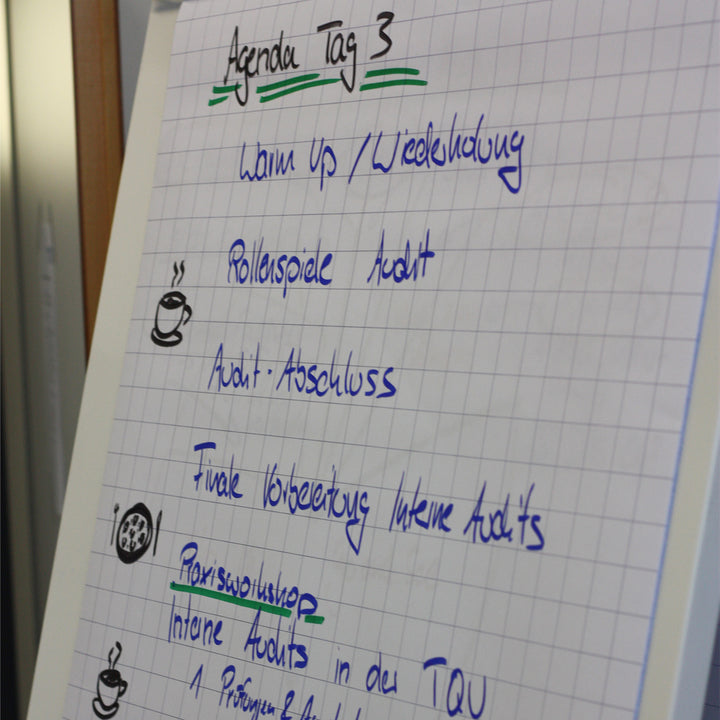 Agenda Tag 3
Warm Up / Wiederholung
Rollenspiele Audit
Audit-Abschluss
Finale Vorbereitung Interne Audits
Praxisworkshop
Interne Audits in der TQU
1 Prüfungen &